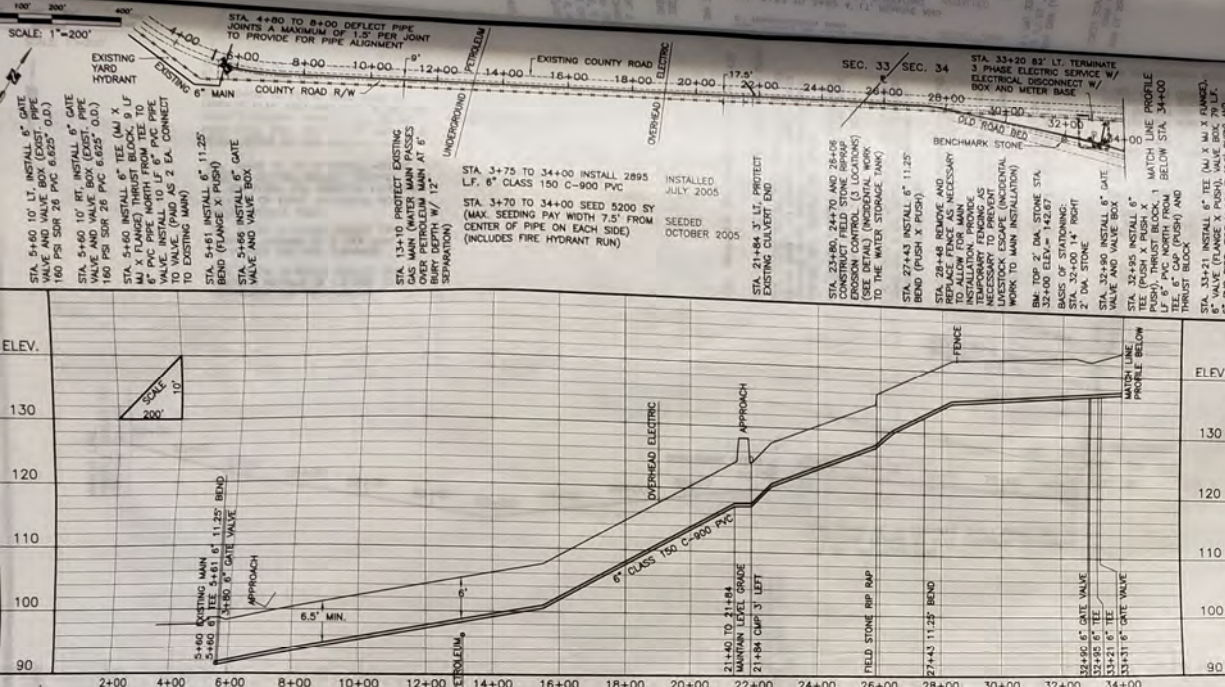 100' 200' 400'
SCALE: 1"=200'
EXISTING
YARD
HYDRANT
4+00
EXISTING 6" MAIN
STA. 4+80 TO 8+00 DEFLECT PIPE
JOINTS A MAXIMUM OF 1.5' PER JOINT
TO PROVIDE FOR PIPE ALIGNMENT
6+00
8+00
COUNTY ROAD R/W
9'
10+00
12+00
UNDERGROUND PETROLEUM
14+00
EXISTING COUNTY ROAD
16+00
18+00
OVERHEAD ELECTRIC
20+00
17.5'
22+00
24+00
SEC. 33 SEC. 34
26+00
28+00
30+00
OLD ROAD BED
BENCHMARK STONE
32+00
34+00
STA. 33+20 82' LT. TERMINATE
3 PHASE ELECTRIC SERVICE W/
ELECTRICAL DISCONNECT W/
BOX AND METER BASE
STA. 5+60 10' LT, INSTALL 6" GATE
VALVE AND VALVE BOX (EXIST. PIPE
160 PSI SDR 26 PVC 6.625" O.D.)
STA. 5+60 10' RT, INSTALL 6" GATE
VALVE AND VALVE BOX (EXIST. PIPE
160 PSI SDR 26 PVC 6.625" O.D.)
STA. 5+60 INSTALL 6" TEE (MJ X
MJ X FLANGE) THRUST BLOCK, 9 LF
6" PVC PIPE NORTH FROM TEE TO
VALVE. INSTALL 10 LF 6" PVC PIPE
TO VALVE, (PAID AS 2 EA. CONNECT
TO EXISTING MAIN)
STA. 5+61, INSTALL 6" 11.25'
BEND (FLANGE X PUSH)
STA. 5+66 INSTALL 6" GATE
VALVE AND VALVE BOX
STA. 13+10 PROTECT EXISTING
GAS MAIN (WATER MAIN PASSES
OVER PETROLEUM MAIN AT 6'
BURY DEPTH W/ 12"
SEPARATION)
STA. 3+75 TO 34+00 INSTALL 2895
L.F. 6" CLASS 150 C-900 PVC
INSTALLED
JULY 2005
STA. 3+70 TO 34+00 SEED 5200 SY
(MAX. SEEDING PAY WIDTH 7.5' FROM
CENTER OF PIPE ON EACH SIDE)
(INCLUDES FIRE HYDRANT RUN)
SEEDED
OCTOBER 2005
STA. 21+84 3' LT, PROTECT
EXISTING CULVERT END
STA. 23+80, 24+70 AND 26+06
CONSTRUCT FIELD STONE RIPRAP
EROSION CONTROL (3 LOCATIONS)
(SEE DETAIL) (INCIDENTAL WORK
TO THE WATER STORAGE TANK)
STA. 27+43 INSTALL 6" 11.25'
BEND (PUSH X PUSH)
STA. 28+48 REMOVE AND
REPLACE FENCE AS NECESSARY
TO ALLOW FOR MAIN
INSTALLATION. PROVIDE
TEMPORARY FENCING AS
NECESSARY TO PREVENT
LIVESTOCK ESCAPE (INCIDENTAL
WORK TO MAIN INSTALLATION)
BM: TOP 2' DIA. STONE STA.
32+00 ELEV.= 142.67
BASIS OF STATIONING:
STA. 32+00 14' RIGHT
2' DIA. STONE
STA. 32+90 INSTALL 6" GATE
VALVE AND VALVE BOX
STA. 32+95 INSTALL 6"
TEE (PUSH X PUSH X
PUSH), THRUST BLOCK, 1
LF 6" PVC NORTH FROM
TEE, 6" CAP (PUSH) AND
THRUST BLOCK
MATCH LINE PROFILE
BELOW STA. 34+00
STA. 33+21 INSTALL 6" TEE (MJ X MJ X FLANGE),
6" VALVE (FLANGE X PUSH), VALVE BOX, 79 L.F.
ELEV.
130
120
110
100
90
SCALE
10'
200'
5+60 EXISTING MAIN
5+60 6" TEE 5+61 6" 11.25' BEND
3+80 6" GATE VALVE
APPROACH
6.5' MIN.
6'
PETROLEUM
OVERHEAD ELECTRIC
6" CLASS 150 C-900 PVC
APPROACH
21+40 TO 21+84
MAINTAIN LEVEL GRADE
21+84 CMP 3' LEFT
FIELD STONE RIP RAP
27+43 11.25' BEND
FENCE
32+90 6" GATE VALVE
32+95 6" TEE
33+21 6" TEE
33+31 6" GATE VALVE
MATCH LINE
PROFILE BELOW
ELEV
130
120
110
100
90
2+00 4+00 6+00 8+00 10+00 12+00 14+00 16+00 18+00 20+00 22+00 24+00 26+00 28+00 30+00 32+00 34+00